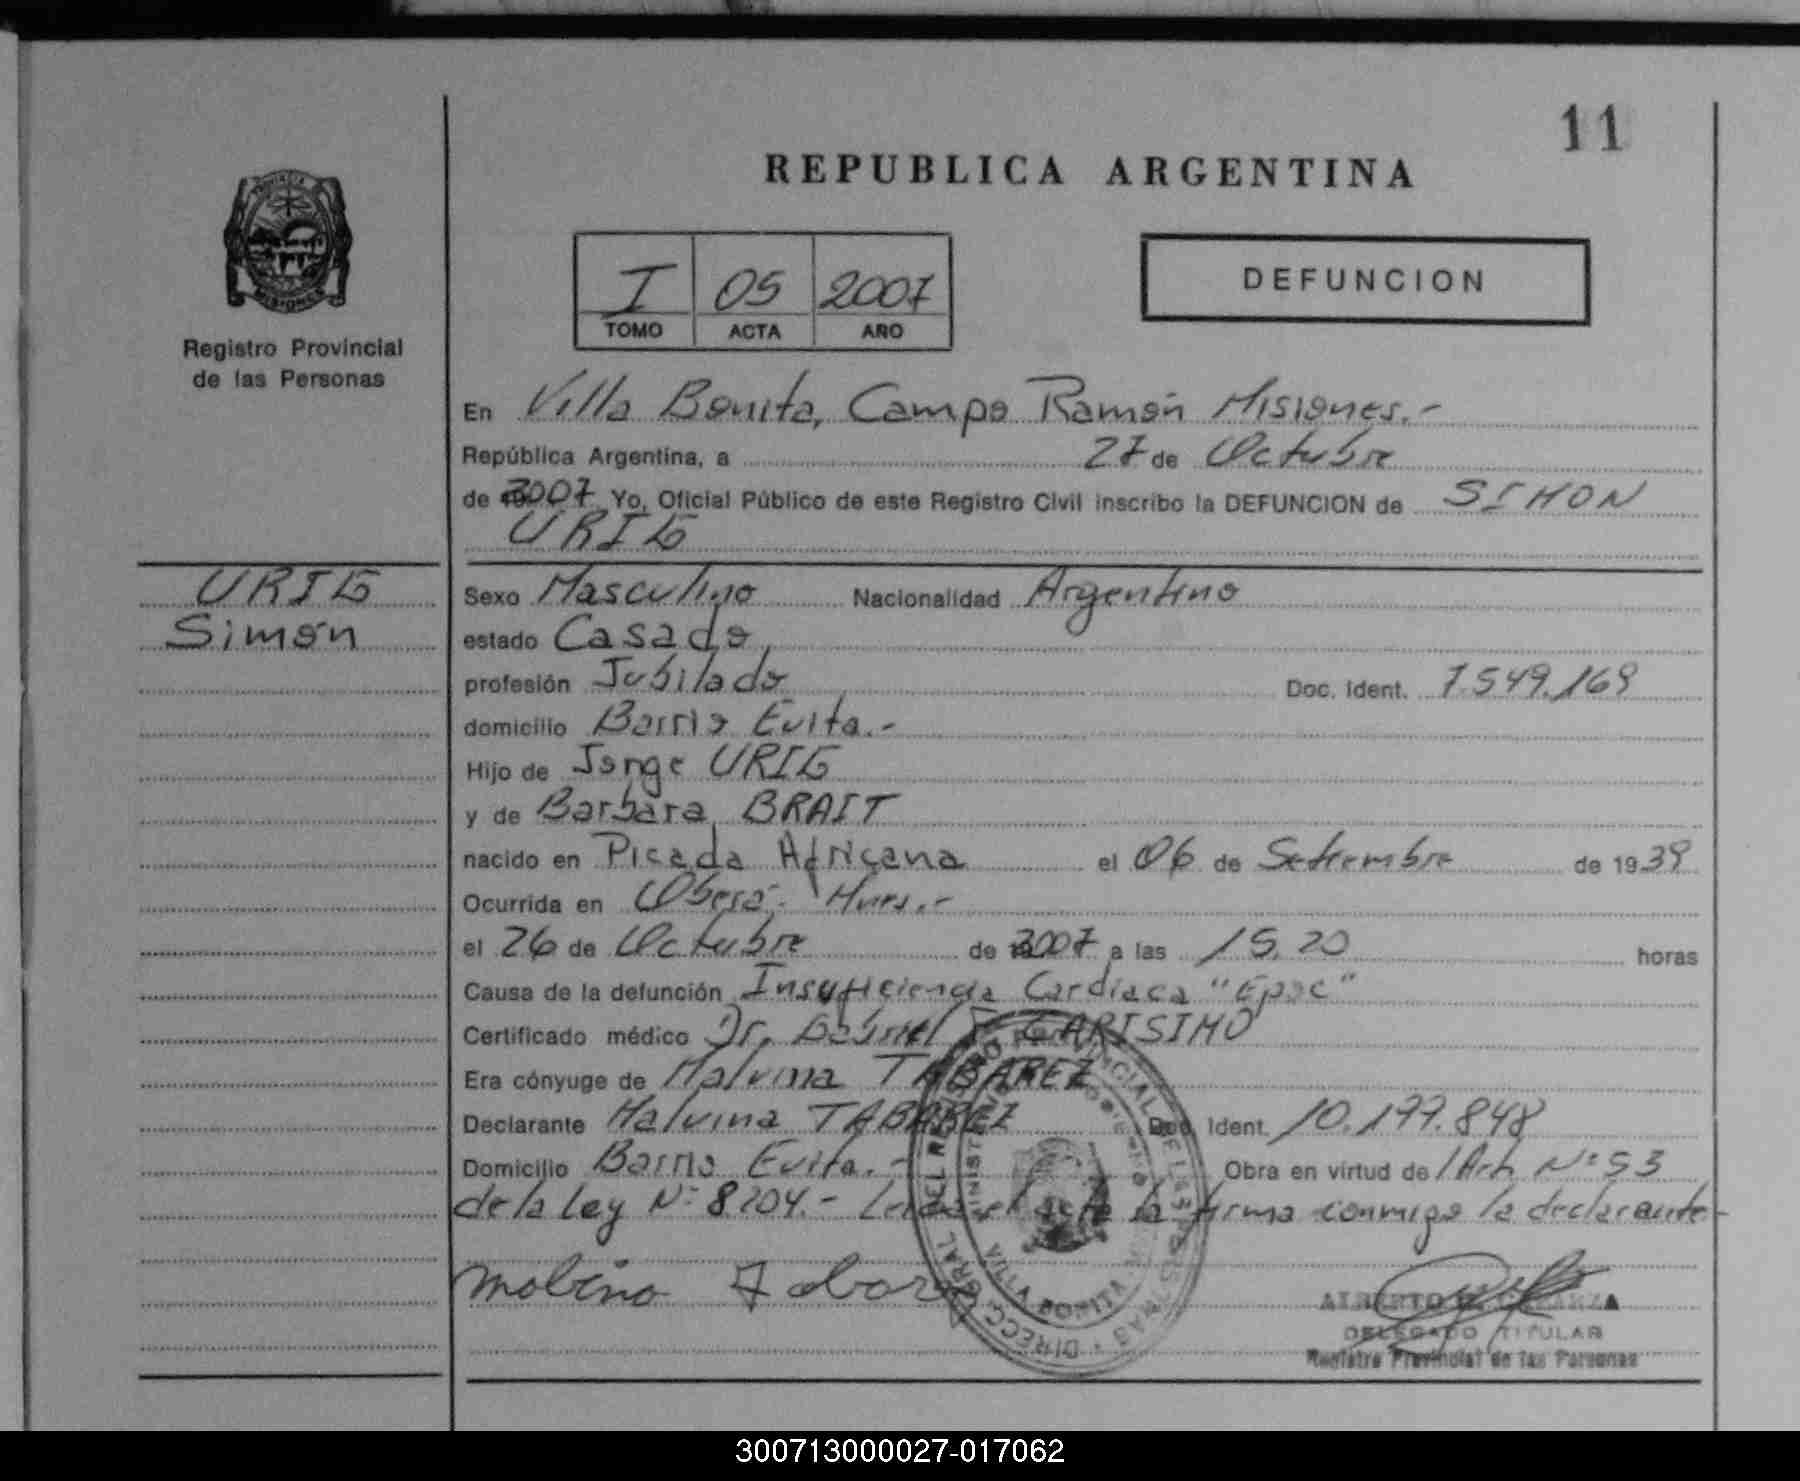 11
REPUBLICA ARGENTINA
DEFUNCION
I 05 2007
TOMO ACTA AÑO
MISIONES
Registro Provincial
de las Personas
En Villa Bonita, Campo Ramón Misiones.-
República Argentina, a 27 de Octubre
de 2007 Yo, Oficial Público de este Registro Civil inscribo la DEFUNCION de SIMON
URIG
URIG
Simón
Sexo Masculino Nacionalidad Argentino
estado Casado
profesión Jubilado Doc. Ident. 7.549.169
domicilio Barrio Evita.-
Hijo de Jorge URIG
y de Barbara BRAIT
nacido en Picada Africana el 06 de Setiembre de 1939
Ocurrida en Oberá. Mnes.-
el 26 de Octubre de 2007 a las 15,20 horas
Causa de la defunción Insuficiencia Cardiaca "Epoc"
Certificado médico Dr. Gabriel CARISIMO
Era cónyuge de Malvina TABAREZ
Declarante Malvina TABAREZ Doc. Ident. 10.177.848
Domicilio Barrio Evita.- Obra en virtud de Art. Nº 53
de la Ley Nº 8.204.- Leida el acta la firma conmigo la declarante-
DELEGADO TITULAR
Registro Provincial de las Personas
300713000027-017062